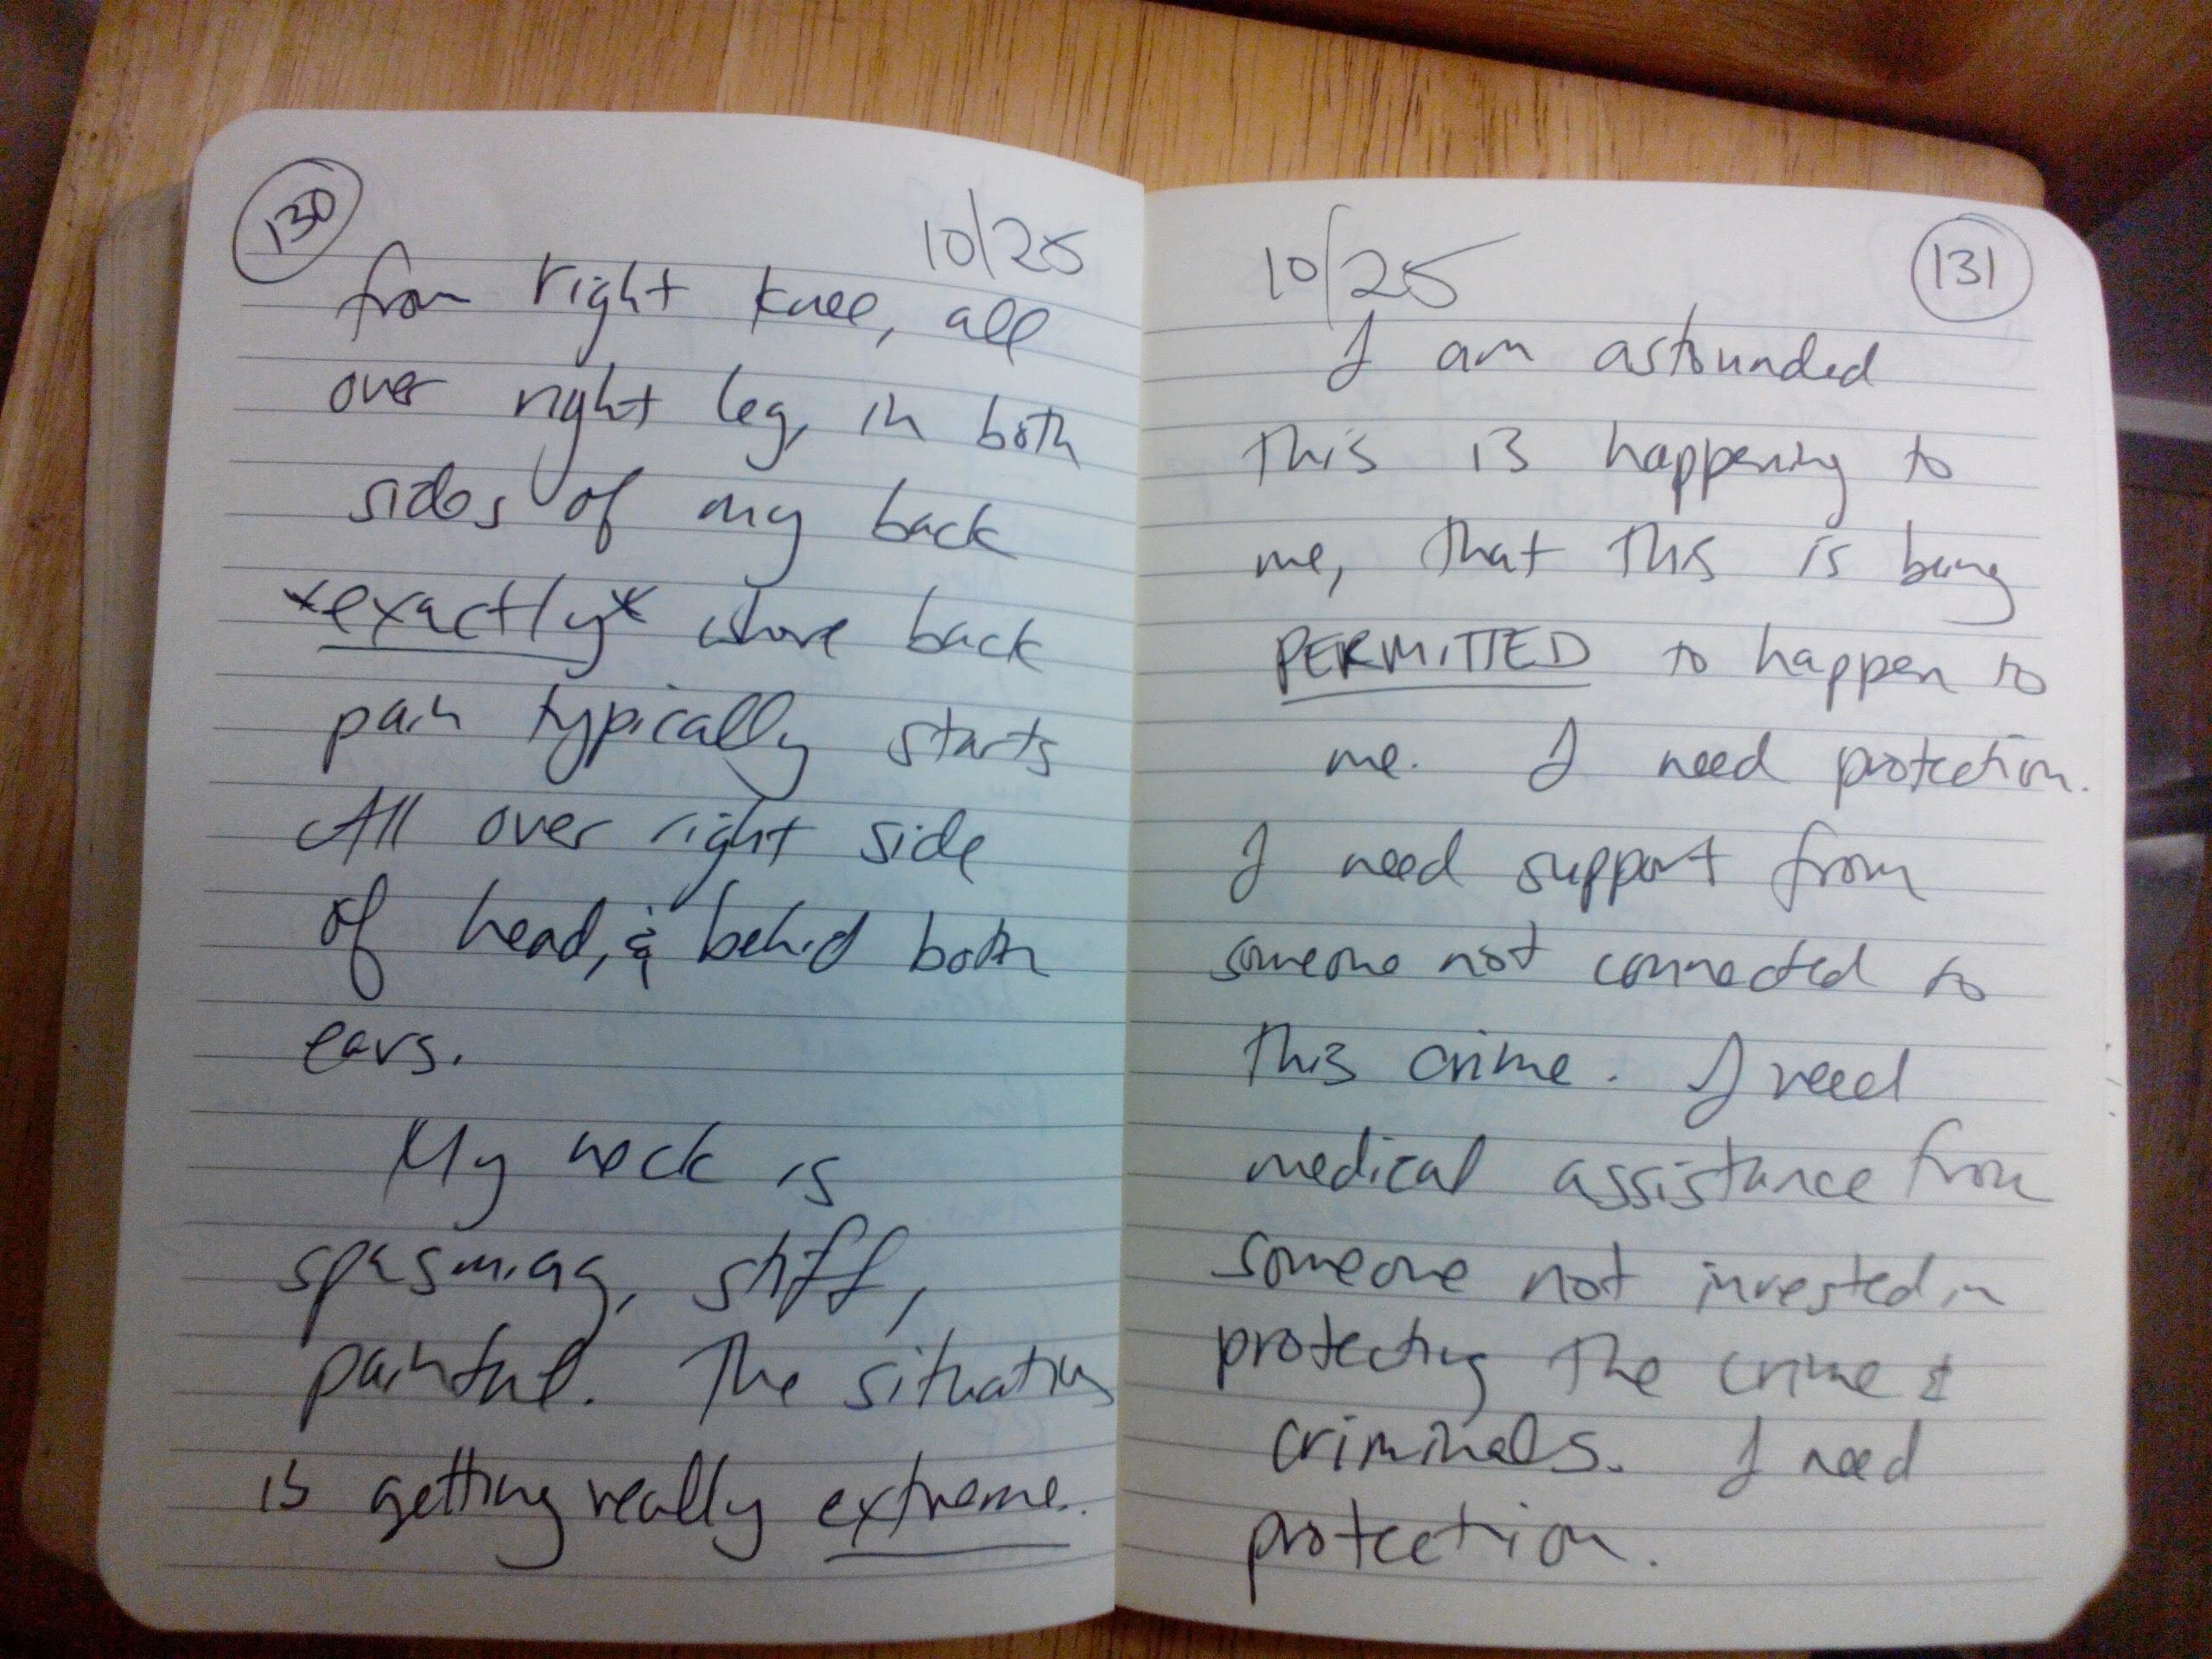 130
10/25
from right knee, all
over right leg, in both
sides of my back
*exactly* where back
pain typically starts
All over right side
of head, & behid both
ears.
My neck is
spasming, stiff,
painful. The situation
is getting really extreme.
10/25
131
I am astounded
this is happening to
me, that this is being
PERMITTED to happen to
me. I need protection.
I need support from
someone not connected to
this crime. I need
medical assistance from
someone not invested in
protecting the crime &
criminals. I need
protection.